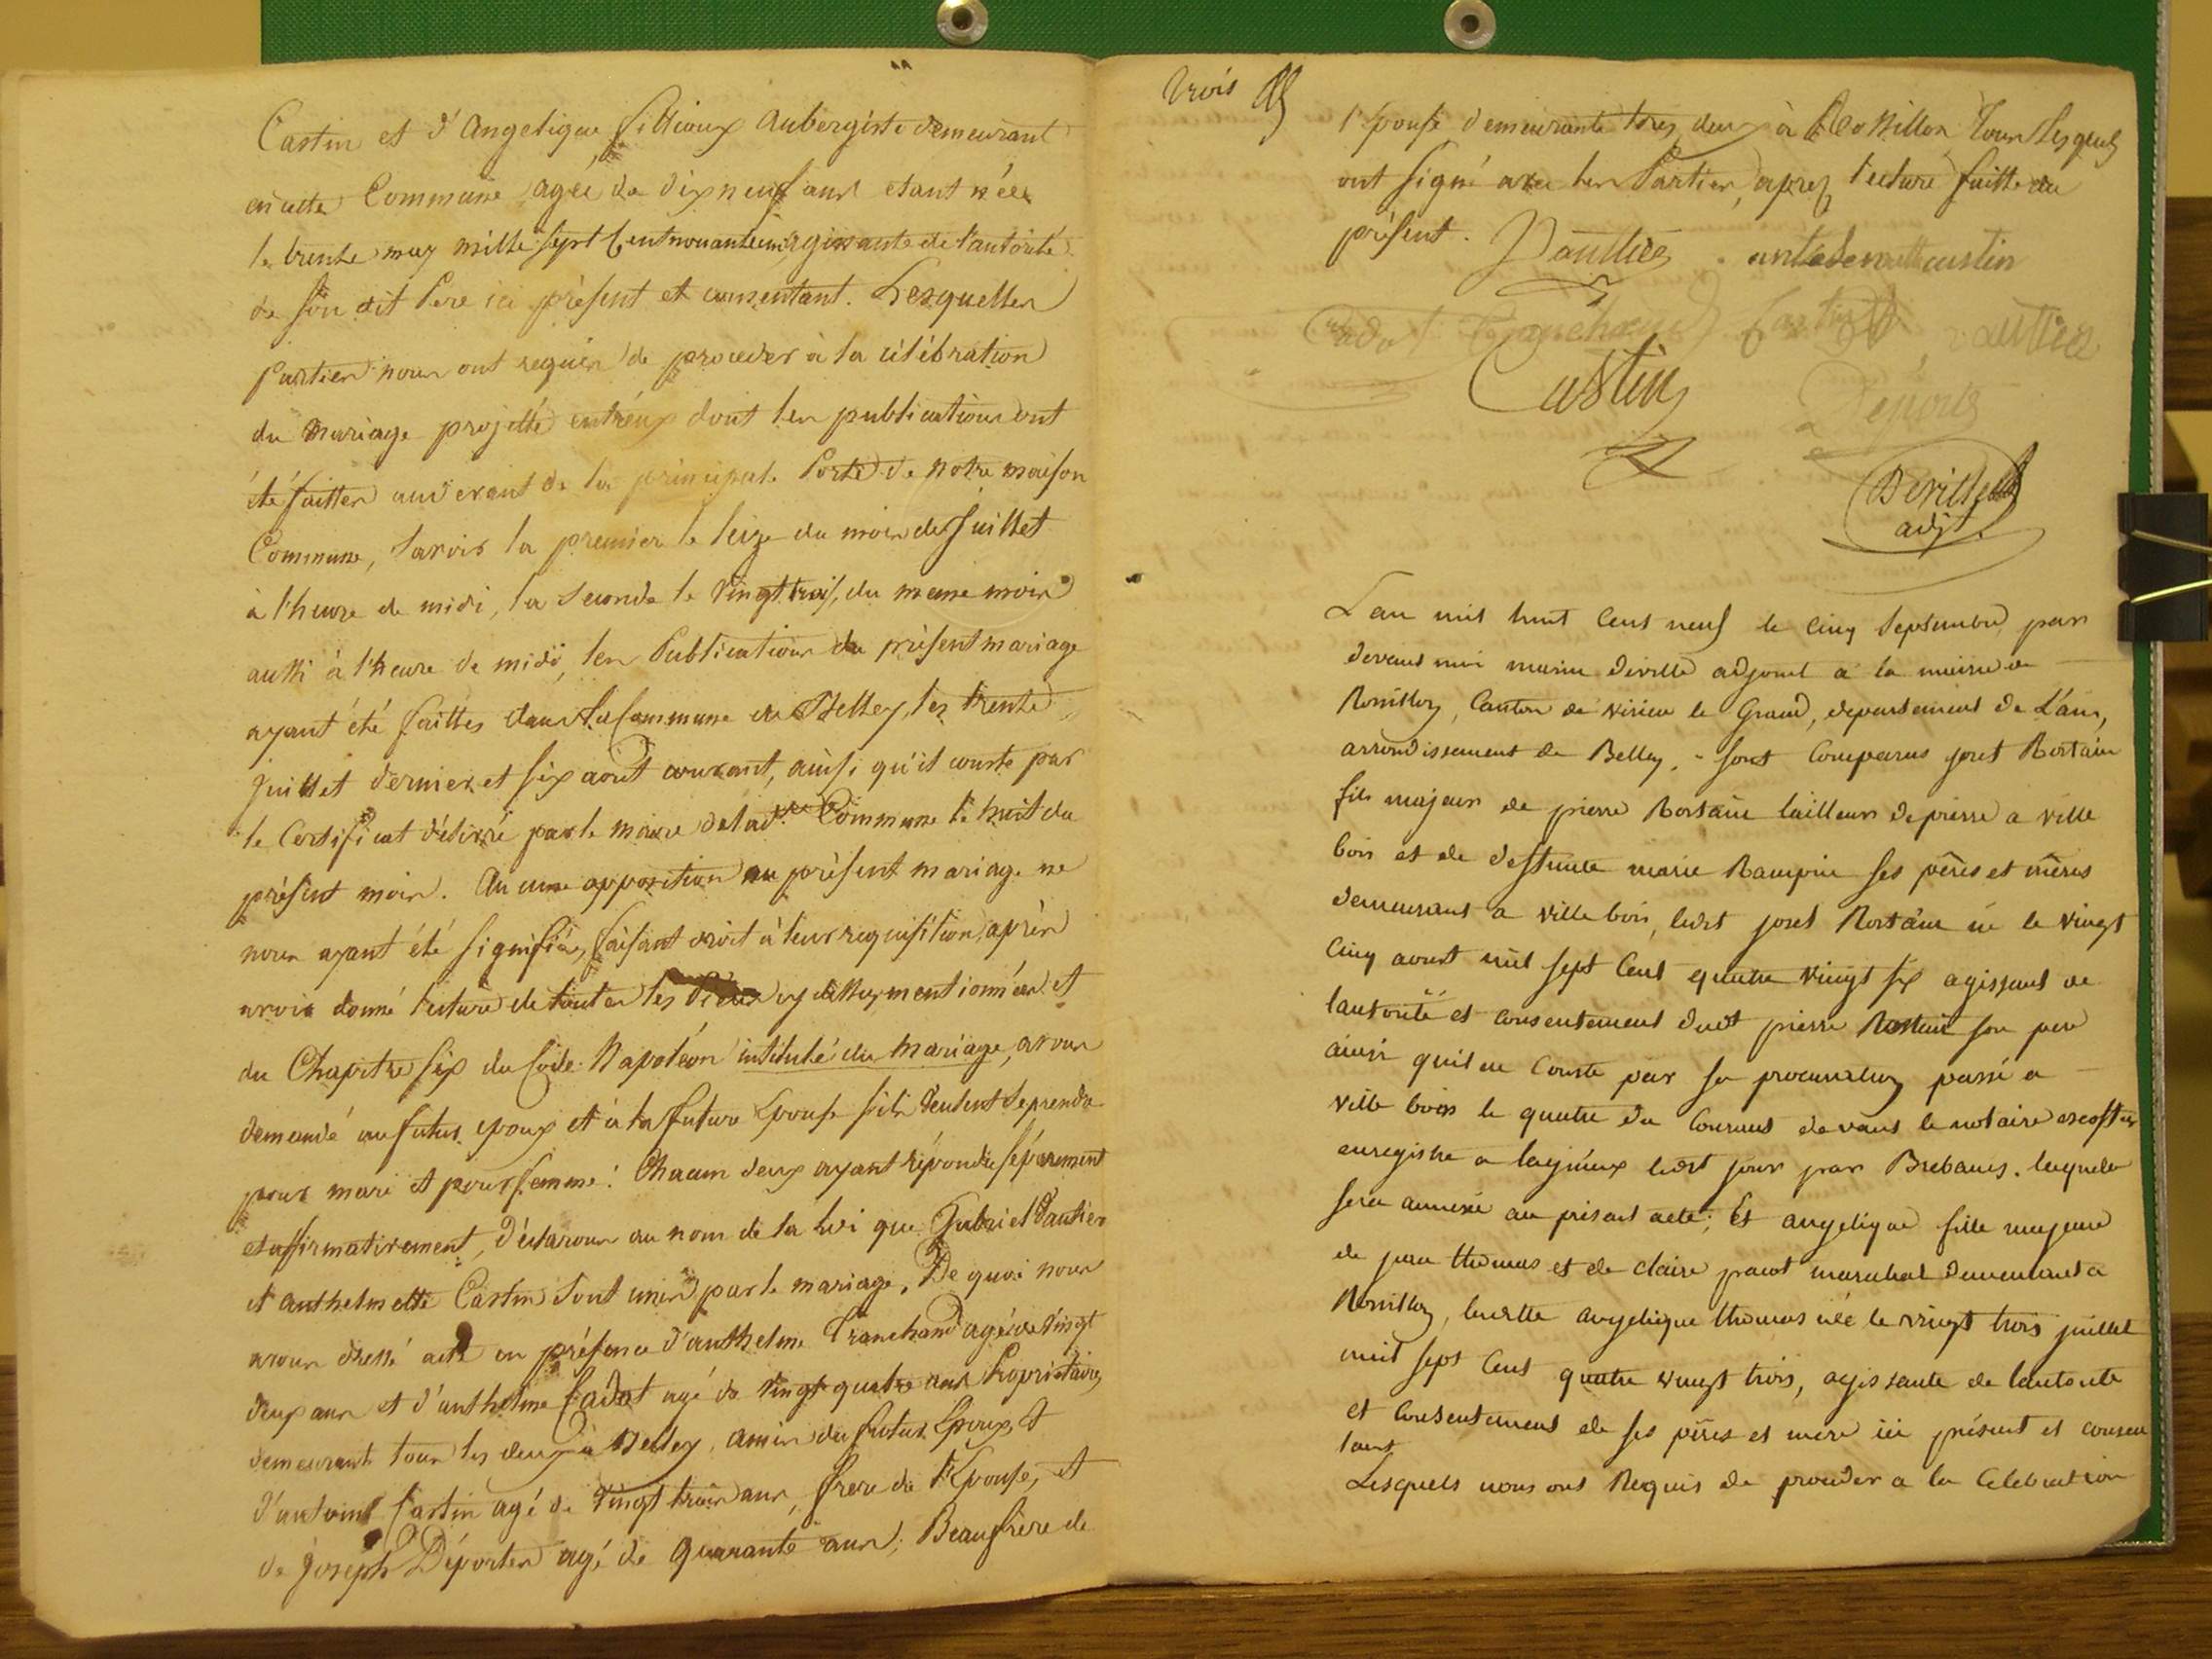 Castin et d'Angelique fillioux aubergiste demeurant
en cette Commune agée de dix neuf ans etant née
le trente may mille sept Cent nonante agissante de l'autorité
de son dit Pere ici présent et consentant. Lesquelles
parties nous ont requis de proceder à la célébration
du mariage projetté entr'eux dont les publications ont
été faittes au devant de la principale Porte de notre maison
Commune, savoir la premiere le seize du mois de Juillet
à l'heure de midi, la seconde le vingt trois, du meme mois
aussi à l'heure de midi, les Publications du présent mariage
ayant été faittes dans la Commune de Belley, les trente
Juillet dernier et six aout courant, ainsi qu'il conste par
le Certificat délivré par le maire de la dte Commune le huit du
présent mois. Aucune opposition au présent mariage ne
nous ayant été signifiée, faisant droit à leur requisition, après
avoir donné lecture de toutes les Pièces cy dessus mentionnées et
du Chapitre six du Code Napoléon intitulé du mariage, avons
demandé au futur epoux et à la future Epouse s'ils veulent se prendre
pour mari et pour femme : Chacun deux ayant répondu séparement
et affirmativement, déclarons au nom de la loi que Gabriel Pautier
et anthelmette Castin sont unis par le mariage. De quoi nous
avons dressé acte en présence d'anthelme Tranchand agé de vingt
deux ans et d'anthelme Cadot agé de vingt quatre ans Propriétaires
demeurant tous les deux à Belley, amis du futur Epoux, et
d'antoine Castin agé de vingt trois ans, frere de l'Epouse, et
de Joseph Déportes agé de quarante ans, Beaufrère de
trois
l'Epouse demeurants tous deux à Rossillon Tous lesquels
ont signé avec les Parties, après lecture faitte du
présent.
castin
Castin
Deville
adjt.
L'an mil huit cent neuf le cinq Septembre par
devant moi deville adjoint a la mairie de
Rossillon, Canton de virieu le Grand, departement de L'ain,
arrondissement de Belley, sont Comparus joset Rostain
fils majeur de pierre Rostain tailleur de pierre a ville
bois et de deffunte marie Rampin ses pères et mères
demeurant a ville bois, ledit joset Rostain né le vingt
cinq aoust mil sept cent quatre vingt six agissant de
lautorité et consentement dudt pierre Rostain son pere
ainsi quil en Conste par sa procuration passé a
ville bois le quatre du Courant devant le notaire
enregistré a lagnieux ledit jour par laquelle
sera annexée au présent acte; Et angelique fille majeure
de jean thomas et de claire marechal demeurant a
Rossillon, ladite angelique thomas née le vingt trois juillet
mil sept cent quatre vingt trois, agissante de lautorité
et consentement de ses pères et mère ici présent et consen
tant
Lesquels nous ont Requis de proceder a la Célébration